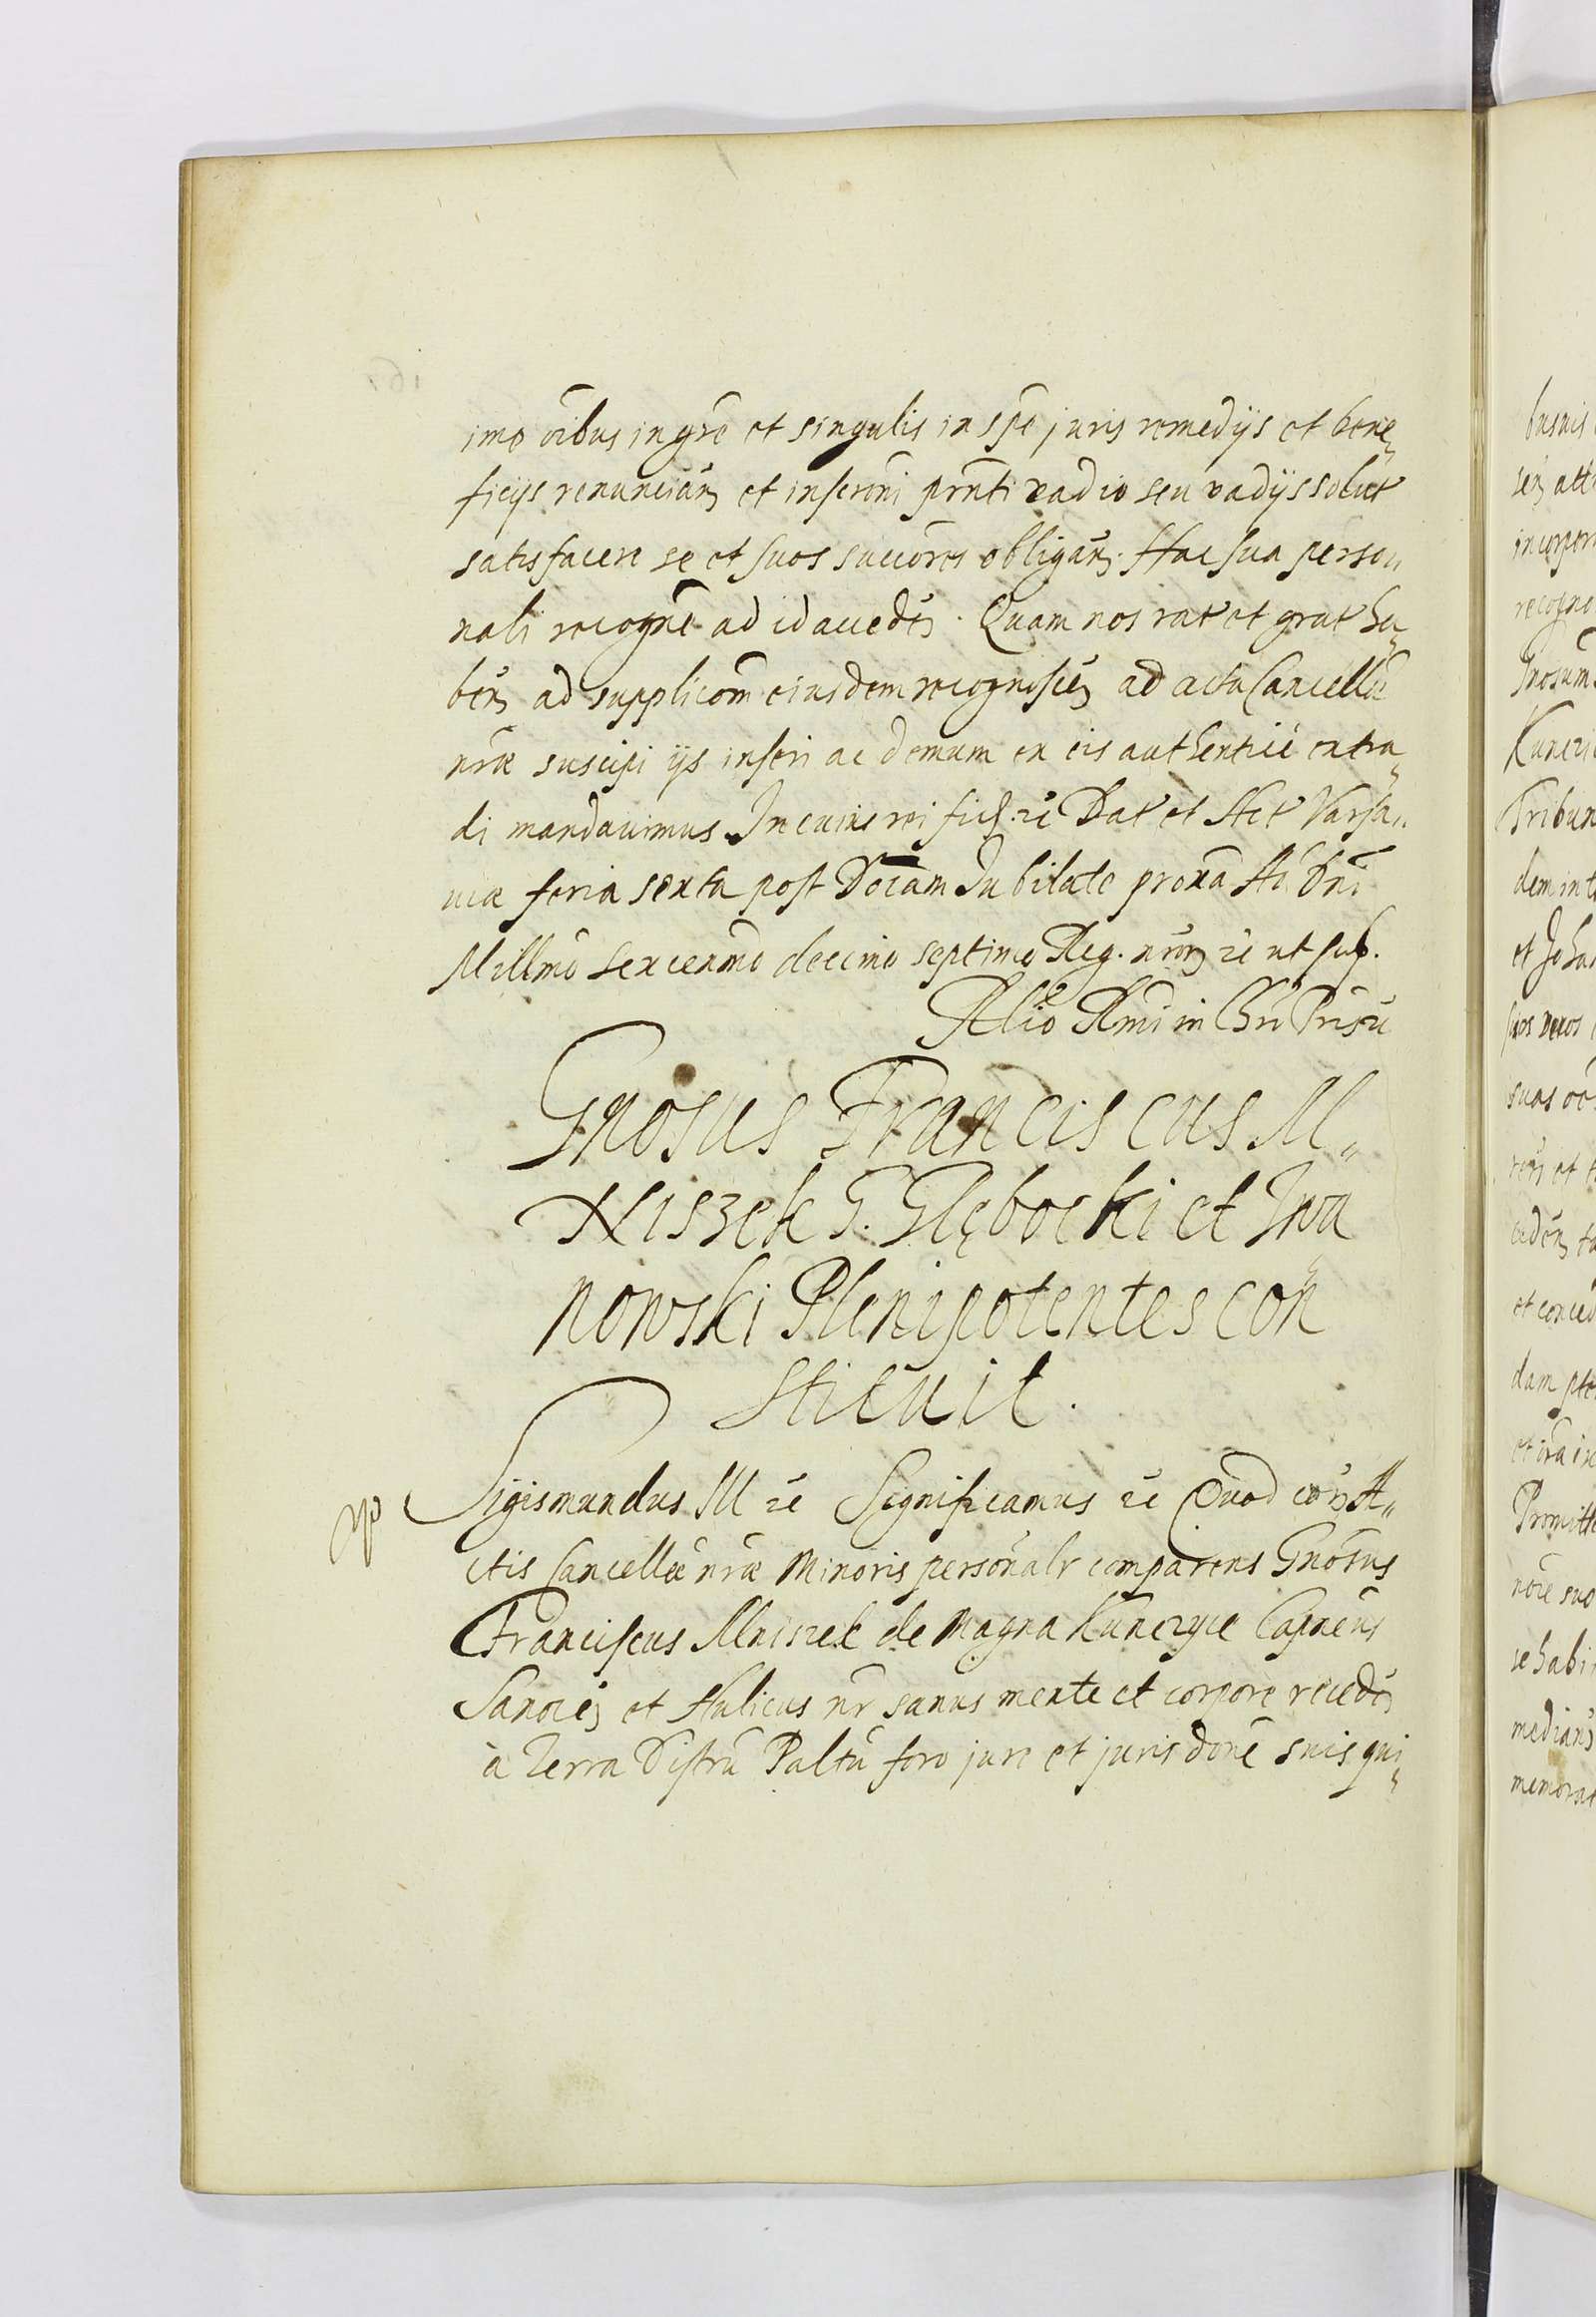 imo oĩbus in gr̃e et singulis in sp̃e juris remedijs et bene„
ficijs renuncian̄ et inscroñi prñti vadio seu vadijs solut
satisfacere se et suos succores obligan̄. Hac sua perso„
nali recogñe ad id acceden̄. Quam nos rat et grat ha„
ben̄ ad supplicoñm eiusdem recognoscen̄ ad acta Cancellæ
nr̃æ suscipi ijs inseri ac demum ex eis authentice extra„
di mandavimus. In cuius rei fid. &c Dat et Act Varsa„
uiæ feria sexta post Docãm Jubilate proxã Aõ Dñi
Millmõ sexcenmõ decimo septimo Reg. nrõr &c ut sup.
Rlio Rm̃di in Chrõ Pris &c
Gnosus Franciscus M„
niszek G. Głębocki et Iwa„
nowski Plenipotentes con„
stituit.
Sigismundus III &c Significamus &c Quod cor̃ A„
ctis Cancellæ nr̃æ Minoris personalr comparens Gnosus
Franciscus Mniszek de Magna Kunczyce Capneus
Sanocen̄ et Aulicus nr̃ sanus mente et corpore receden̄
à Terra Distrũ Paltũ foro jure et jurisdone suis qui„